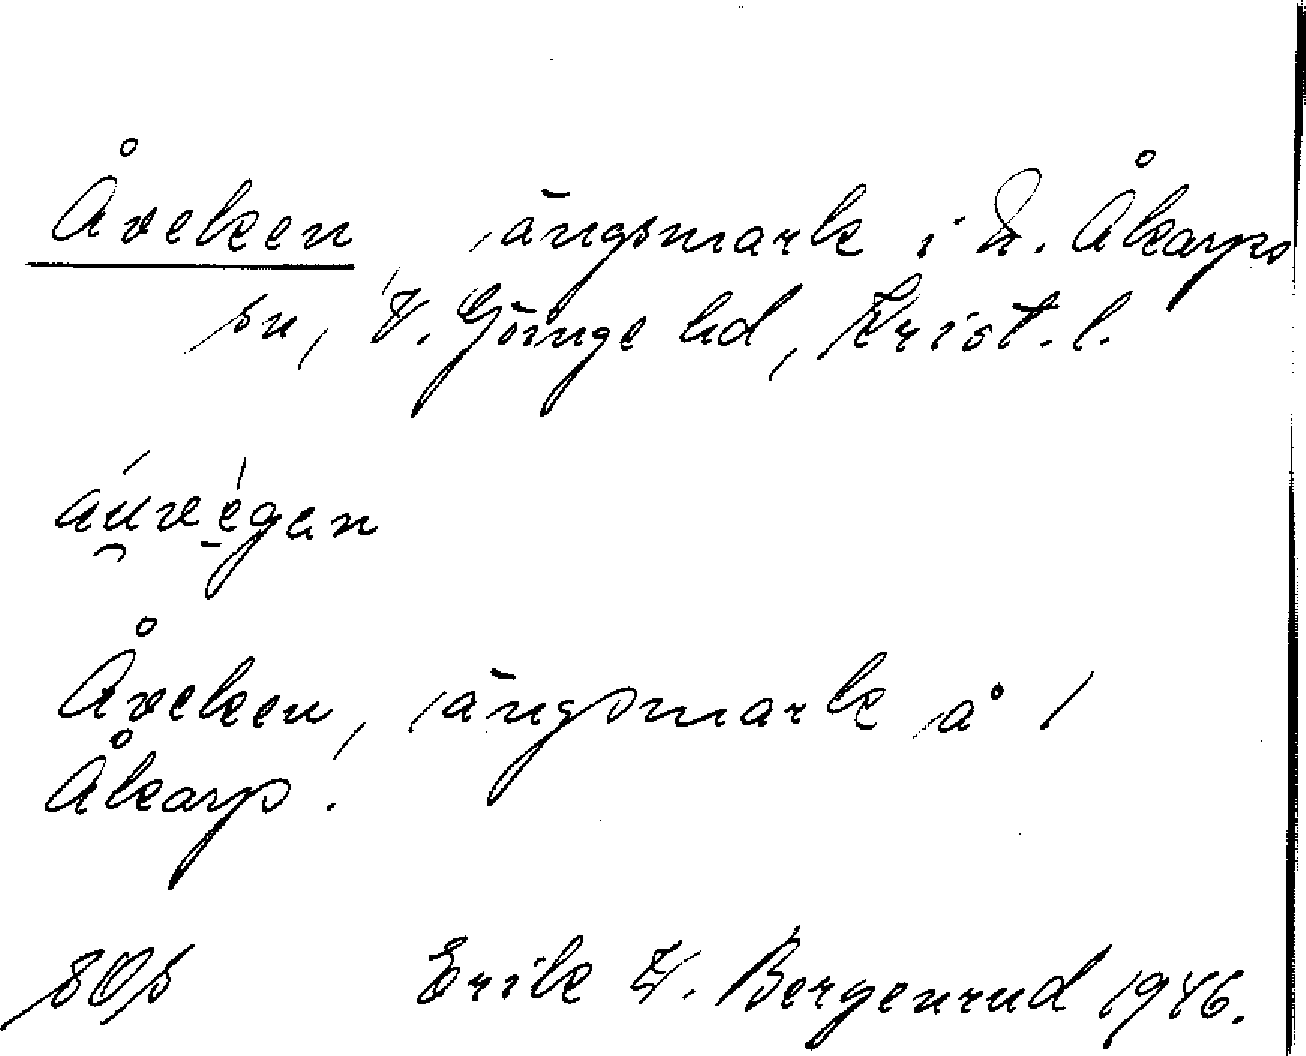 Åveken, ängsmark i N. Åkarps
sn, V. Göinge hd, Krist. l.
áu̯vègan
Åveken, ängsmark å 1
Åkarp.
Erik W. Bergenrud 1946.